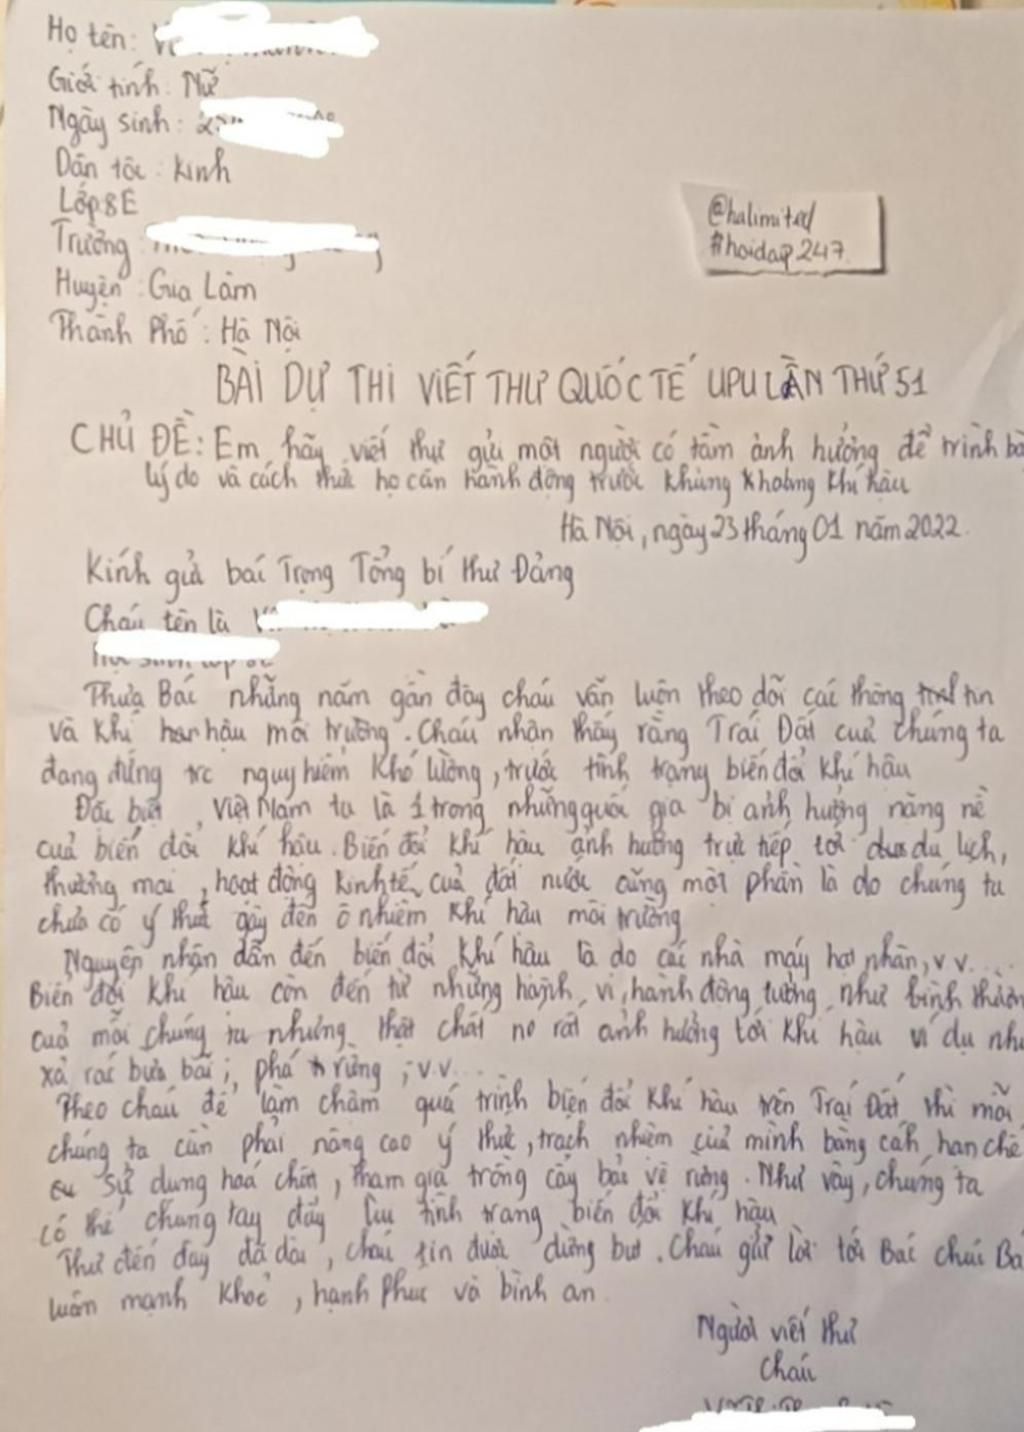 Họ tên: V
Giới tính: Nữ
Ngày sinh: 2
Dân tộc: Kinh
Lớp 8E
Trường:
Huyện: Gua Lâm
Thành Phố: Hà Nội
@halimited
#hoidap247
BÀI DỰ THI VIẾT THƯ QUỐC TẾ UPU LẦN THỨ 51
CHỦ ĐỀ: Em hãy viết thư gửi một người có tầm ảnh hưởng để trình bà
lý do và cách thức họ cần hành động trước khủng khoảng khí hậu
Hà Nội, ngày 23 tháng 01 năm 2022.
Kính gửi bác Trọng Tổng bí thư Đảng
Cháu tên là V
Thưa Bác những năm gần đây cháu vẫn luôn theo dõi các thông tin
và khí hậu môi trường. Cháu nhận thấy rằng Trái Đất của chúng ta
đang đứng trc nguy hiểm khó lường, trước tình trạng biến đổi khí hậu
Đặc biệt, Việt Nam ta là 1 trong những quốc gia bị ảnh hưởng nặng nề
của biến đổi khí hậu. Biến đổi khí hậu ảnh hưởng trực tiếp tới du lịch,
thương mại, hoạt động kinh tế của đất nước cũng một phần là do chúng ta
chưa có ý thức gây đến ô nhiễm khí hậu môi trường
Nguyên nhận dẫn đến biến đổi khí hậu là do các nhà máy hạt nhân, v.v....
Biến đổi khí hậu còn đến từ những hành vi, hành động tưởng như bình thườn
của mỗi chúng ta nhưng thật chất nó rất ảnh hưởng tới khí hậu ví dụ nh
xả rác bừa bãi; phá rừng; v.v...
Theo cháu để làm chậm quá trình biến đổi khí hậu trên Trái Đất thì mỗi
chúng ta cần phải nâng cao ý thức, trách nhiệm của mình bằng cách hạn chế
sử dụng hoá chất, tham gia trồng cây bảo vệ rừng. Như vậy, chúng ta
có thể chung tay đẩy lùi tình trạng biến đổi khí hậu
Thư đến đây đã dài, cháu xin được dừng bút. Cháu gửi lời tới Bác chúc Bá
luôn mạnh khoẻ, hạnh phúc và bình an.
Người viết thư
Cháu